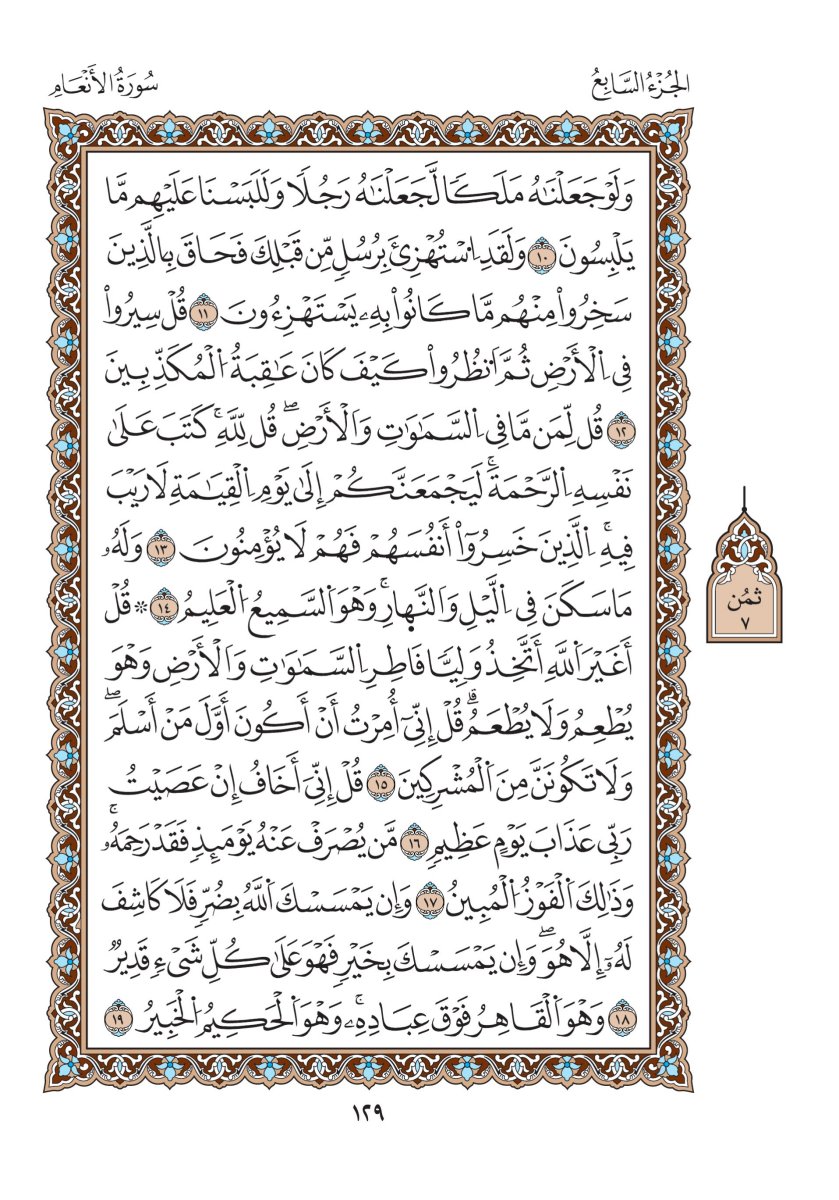 الجُزْءُ السَّابِعُ
سُورَةُ الأَنْعَامِ
وَلَوْ جَعَلْنَٰهُ مَلَكًا لَّجَعَلْنَٰهُ رَجُلًا وَلَلَبَسْنَا عَلَيْهِم مَّا
يَلْبِسُونَ ١٠ وَلَقَدِ اِ۟سْتُهْزِئَ بِرُسُلٍ مِّن قَبْلِكَ فَحَاقَ بِالَّذِينَ
سَخِرُواْ مِنْهُم مَّا كَانُواْ بِهِۦ يَسْتَهْزِءُونَ ١١ قُلْ سِيرُواْ
فِى اِ۬لْأَرْضِ ثُمَّ اَ۟نظُرُواْ كَيْفَ كَانَ عَٰقِبَةُ اُ۬لْمُكَذِّبِينَ
١٢ قُل لِّمَن مَّا فِى اِ۬لسَّمَٰوَٰتِ وَالْأَرْضِۖ قُل لِّلهِۚ كَتَبَ عَلَىٰ
نَفْسِهِ اِ۬لرَّحْمَةَۚ لَيَجْمَعَنَّكُمْ إِلَىٰ يَوْمِ اِ۬لْقِيَٰمَةِ لَا رَيْبَ
فِيهِۚ اِ۬لَّذِينَ خَسِرُوٓاْ أَنفُسَهُمْ فَهُمْ لَا يُؤْمِنُونَ ١٣ وَلَهُۥ
مَا سَكَنَ فِى اِ۬لَّيْلِ وَالنَّهارِۚ وَهُوَ اَ۬لسَّمِيعُ اُ۬لْعَلِيمُ ١٤ ۞ قُلْ
أَغَيْرَ اَ۬للَّهِ أَتَّخِذُ وَلِيًّا فَاطِرِ اِ۬لسَّمَٰوَٰتِ وَالْأَرْضِ وَهْوَ
يُطْعِمُ وَلَا يُطْعَمُۗ قُلْ إِنِّىٓ أُمِرْتُ أَنْ أَكُونَ أَوَّلَ مَنْ أَسْلَمَۖ
وَلَا تَكُونَنَّ مِنَ اَ۬لْمُشْرِكِينَ ١٥ قُلْ إِنِّىَ أَخَافُ إِنْ عَصَيْتُ
رَبِّى عَذَابَ يَوْمٍ عَظِيمٍ ١٦ مَّن يُصْرَفْ عَنْهُ يَوْمَئِذٍ فَقَدْ رَحِمَهُۥۚ
وَذَٰلِكَ اَ۬لْفَوْزُ اُ۬لْمُبِينُ ١٧ وَإِن يَمْسَسْكَ اَ۬للَّهُ بِضُرٍّ فَلَا كَاشِفَ
لَهُۥٓ إِلَّا هُوَۖ وَإِن يَمْسَسْكَ بِخَيْرٍ فَهْوَ عَلَىٰ كُلِّ شَىْءٍ قَدِيرٌ
١٨ وَهْوَ اَ۬لْقَاهِرُ فَوْقَ عِبَادِهِۦۚ وَهْوَ اَ۬لْحَكِيمُ اُ۬لْخَبِيرُ ١٩
ثُمُن
٧
١٢٩